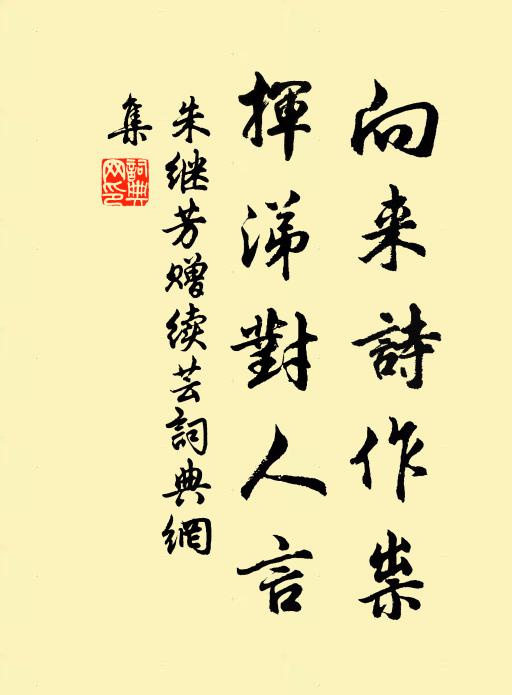 向来詩作祟
揮涕對人言
朱继芳赠续芸詞典網
集
詞典網印